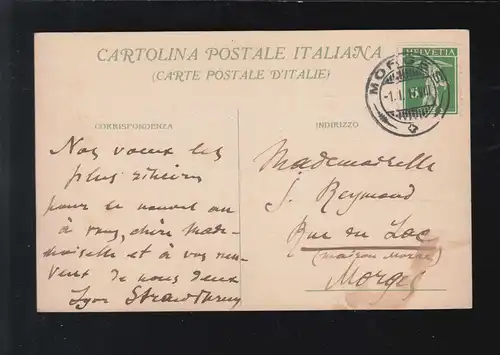 CARTOLINA POSTALE ITALIANA
(CARTE POSTALE D'ITALIE)
HELVETIA
5
MORGES
CORRISPONDENZA
INDIRIZZO
Nos voeux les
plus sincères
pour le nouvel an
à vous, chère Made-
moiselle et à vos
de nous deux
Igor Strawinsky
Mademoiselle
J. Reymond
Rue du Lac
(maison Monay)
Morges